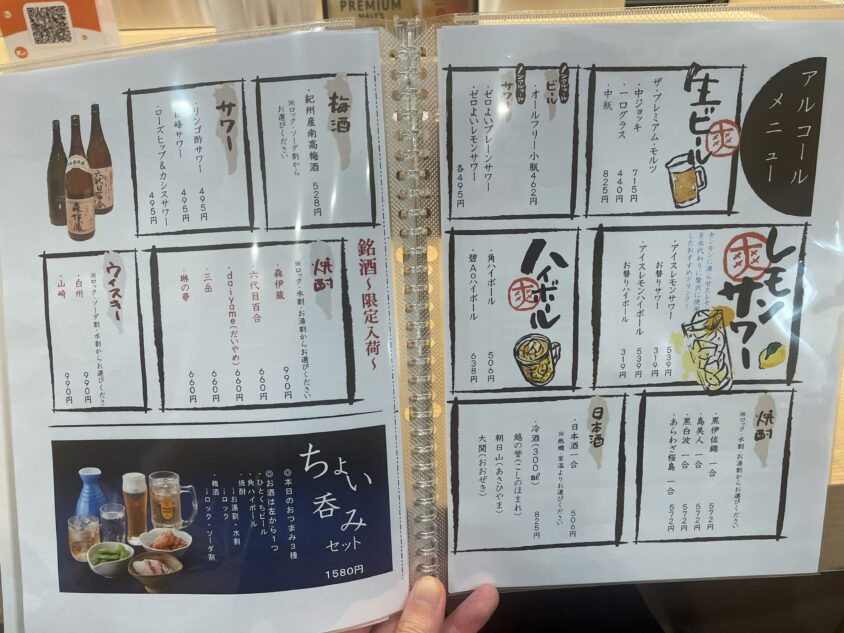 PREMIUM
MALT'S
アルコール
メニュー
生ビール
爽
ザ・プレミアム・モルツ
・中ジョッキ 715円
・一口グラス 440円
・中瓶 825円
ノンアルコール
ビール
・オールフリー小瓶 462円
ノンアルコール
サワー
・ゼロよいプレーンサワー
・ゼロよいレモンサワー
各495円
レモンサワー
爽
キンキンに凍らせたレモン
を氷代わりに贅沢に使用
したおすすめドリンク!
・アイスレモンサワー 539円
お替りサワー 319円
・アイスレモンハイボール 539円
お替りハイボール 319円
ハイボール
爽
・角ハイボール 506円
・碧Aoハイボール 638円
焼酎
※ロック・水割・お湯割からお選びください
・黒伊佐錦 一合 572円
・島美人 一合 572円
・黒白波 一合 572円
・あらわざ桜島 一合 572円
日本酒
・日本酒一合 506円
※熱燗、常温よりお選びください
・冷酒(300㎖) 825円
越の誉(こしのほまれ)
朝日山(あさひやま)
大関(おおぜき)
梅酒
・紀州産南高梅酒 528円
※ロック・ソーダ割から
お選びください
サワー
・リンゴ酢サワー 495円
・巨峰サワー 495円
・ローズヒップ&カシスサワー 495円
銘酒~限定入荷~
焼酎
※ロック・水割・お湯割からお選びください
・森伊蔵 990円
・六代目百合 660円
・daiyame(だいやめ) 660円
・三岳 660円
・琳の華 660円
ウィスキー
※ロック・ソーダ割・水割・お湯割からお選びください
・白州 990円
・山崎 990円
六代目百合
森伊蔵
ちょい呑みセット
1580円
◎本日のおつまみ3種
◎お酒は左から1つ
・ひとくちビール
・角ハイボール
・焼酎
→お湯割・水割
→ロック
・梅酒
→ロック・ソーダ割